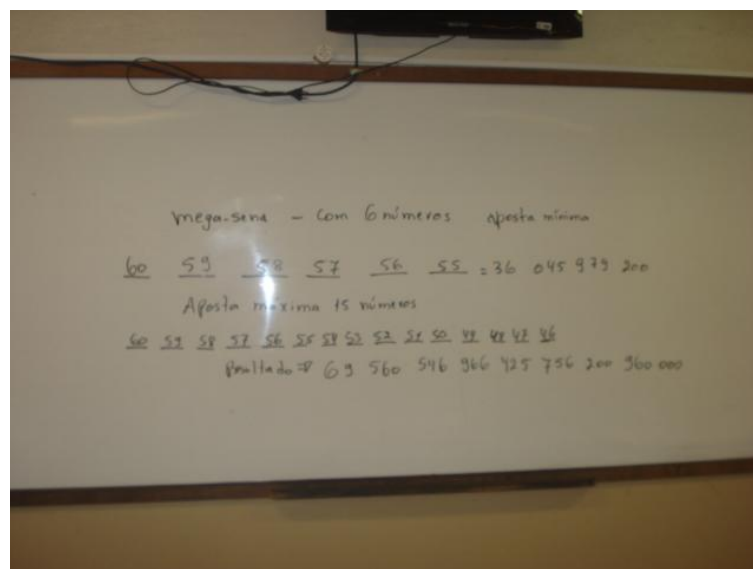 mega-sena - Com 6 números aposta mínima
60 59 58 57 56 55 = 36 045 979 200
Aposta máxima 15 números
60 59 58 57 56 55 54 53 52 51 50 49 48 47 46
Resultado ⇒ 69 560 546 966 425 756 200 960 000